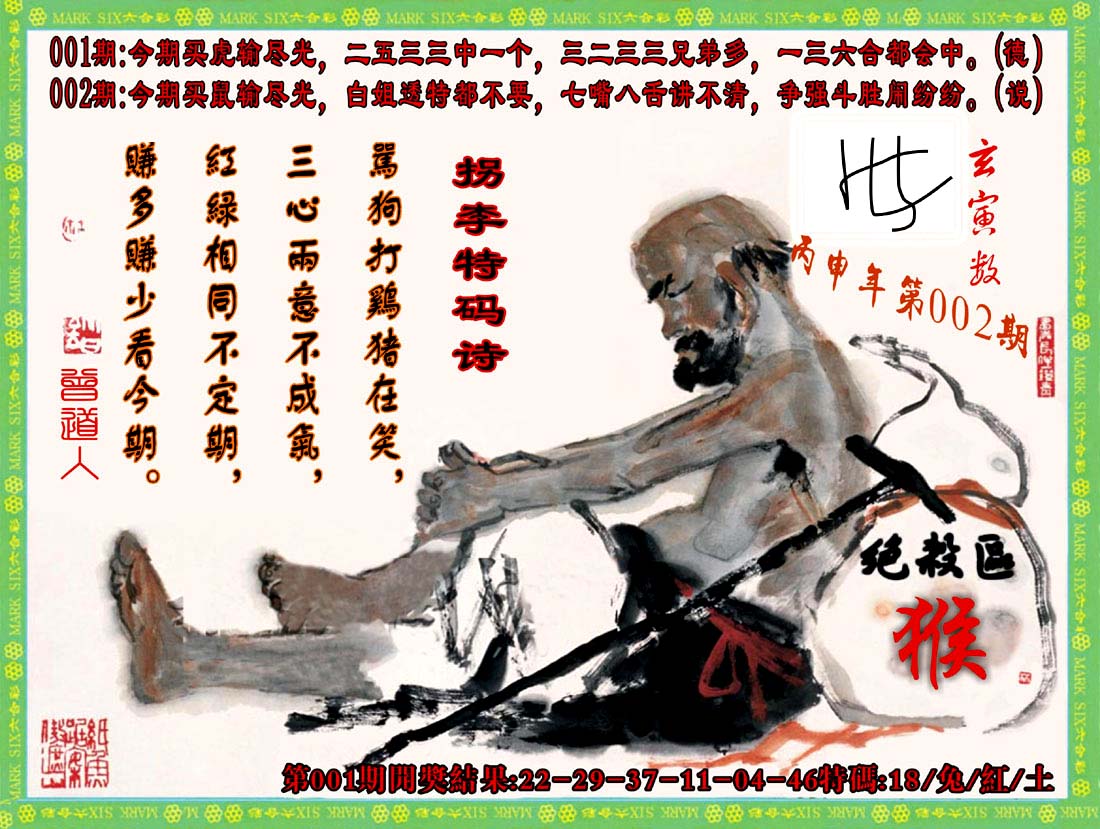 MARK SIX六合彩 MARK SIX六合彩 MARK SIX六合彩 MARK SIX六合彩 MARK SIX六合彩
001期:今期买虎输尽光，二五三三中一个，三二三三兄弟多，一三六合都会中。(德)
002期:今期买鼠输尽光，白姐透特都不要，七嘴八舌讲不清，争强斗胜闹纷纷。(说)
玄寅数
丙申年第002期
拐李特码诗
駡狗打鷄猪在笑，
三心兩意不成氣，
紅綠相同不定期，
賺多賺少看今期。
曾道人
绝殺區
猴
第001期開獎結果:22-29-37-11-04-46特碼:18/兔/紅/土